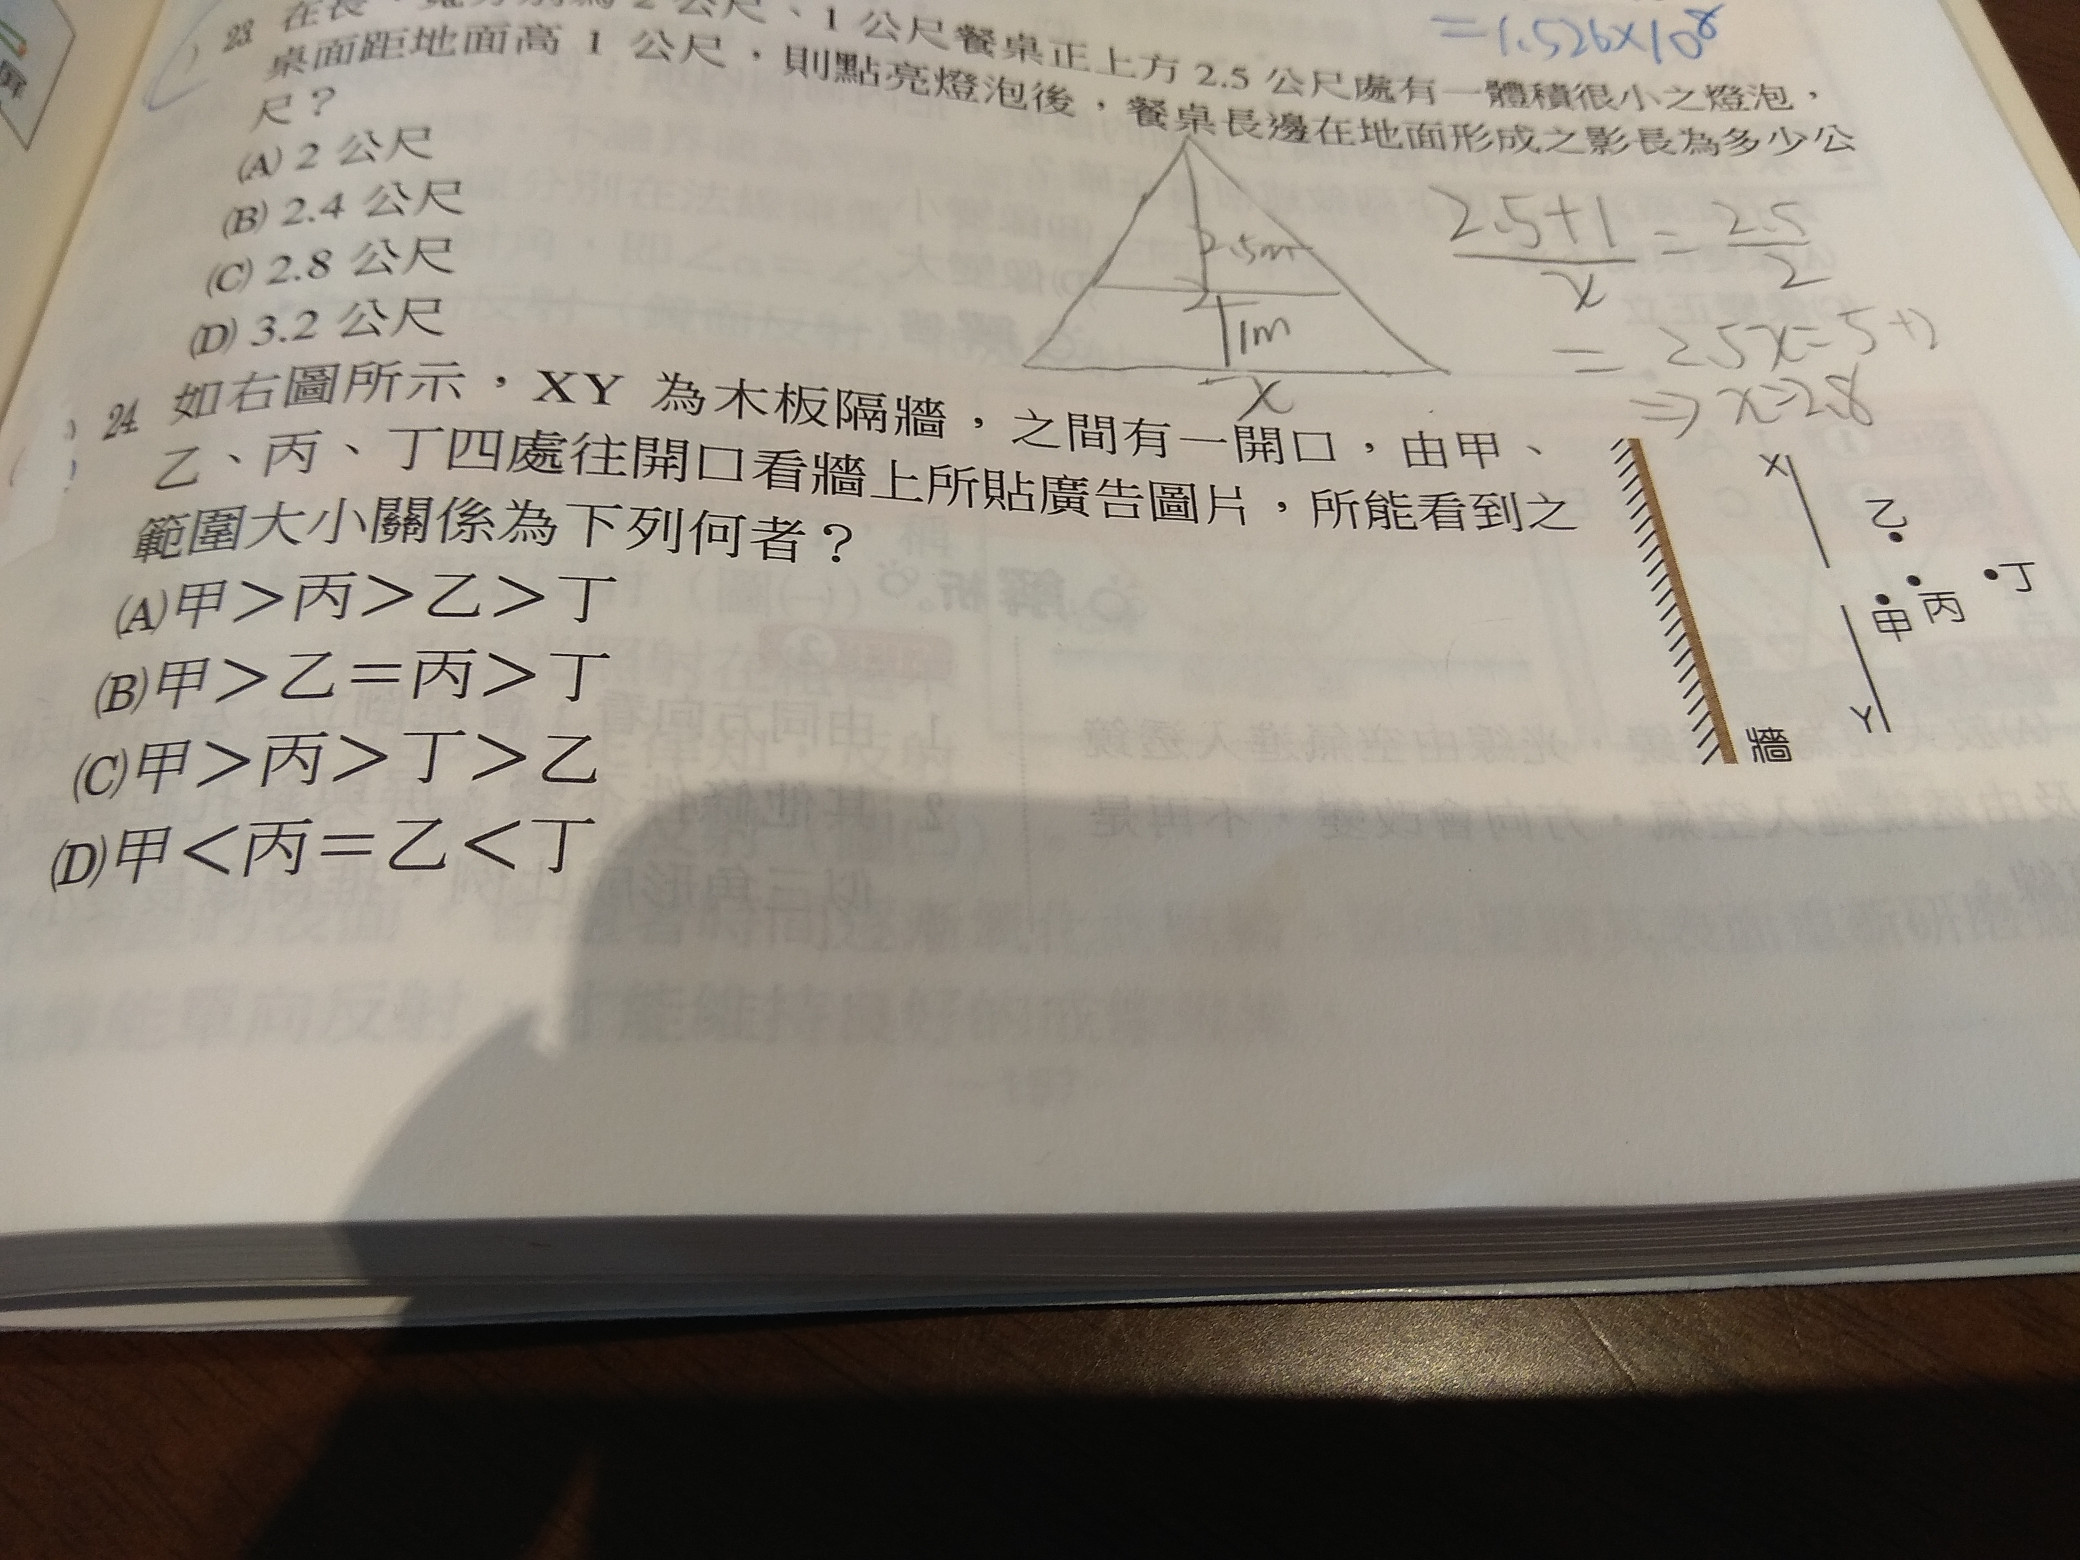 =1.526×10⁸
23 在長、寬分別為 2 公尺、1 公尺餐桌正上方 2.5 公尺處有一體積很小之燈泡，
桌面距地面高 1 公尺，則點亮燈泡後，餐桌長邊在地面形成之影長為多少公
尺？
(A) 2 公尺
(B) 2.4 公尺
(C) 2.8 公尺
(D) 3.2 公尺
2.5m
2
1m
x
2.5+1/x = 2.5/2
= 2.5x=5+2
⇒ x=2.8
24 如右圖所示，XY 為木板隔牆，之間有一開口，由甲、
乙、丙、丁四處往開口看牆上所貼廣告圖片，所能看到之
範圍大小關係為下列何者？
(A)甲＞丙＞乙＞丁
(B)甲＞乙＝丙＞丁
(C)甲＞丙＞丁＞乙
(D)甲＜丙＝乙＜丁
X
乙
丁
甲 丙
Y
牆